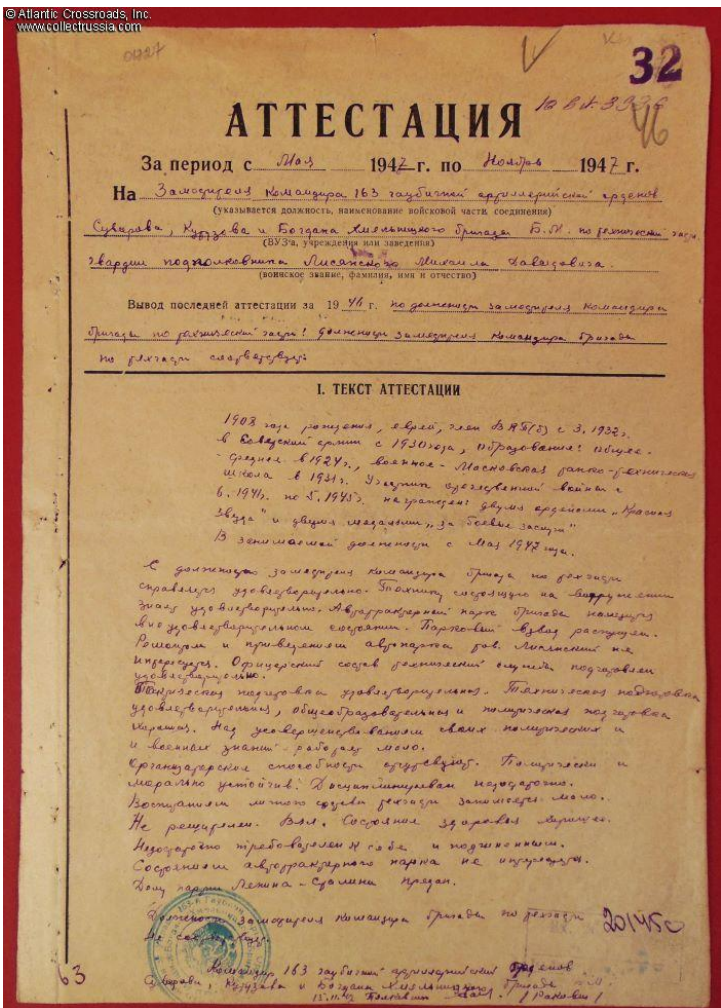 © Atlantic Crossroads, Inc.
www.collectrussia.com
32
46
АТТЕСТАЦИЯ
За период с Мая 1947 г. по Ноябрь 1947 г.
На Заместителя командира 163 гаубичной артиллерийской орденов
(указывается должность, наименование войсковой части, соединения)
Суворова, Кутузова и Богдана Хмельницкого бригады Б.М. по технической части
(ВУЗ'а, учреждения или заведения)
гвардии подполковника Лисянского Михаила Давыдовича.
(воинское звание, фамилия, имя и отчество)
Вывод последней аттестации за 1946 г. по должности заместителя командира
бригады по технической части: должности заместителя командира бригады
по техчасти соответствует.
I. ТЕКСТ АТТЕСТАЦИИ
1908 года рождения, еврей, член ВКП(б) с 3.1932г.
в Советской армии с 1930 года, образование: общее-
среднее в 1924г., военное - Московская танко-техническая
школа в 1931г. Участник отечественной войны с
6.1941г. по 5.1945г. награжден: двумя орденами „Красная
Звезда" и двумя медалями „За боевые заслуги"
В занимаемой должности с Мая 1947 года.
С должностью заместителя командира бригады по техчасти
справляется удовлетворительно. Технику состоящую на вооружении
знает удовлетворительно. Автотракторный парк бригады находится
в неудовлетворительном состоянии. Парковый взвод распущен.
Ремонтом и приведением автопарка тов. Лисянский не
интересуется. Офицерский состав технической службы подготовлен
удовлетворительно.
Тактическая подготовка удовлетворительная. Техническая подготовка
удовлетворительная, общеобразовательная и политическая подготовка
хорошая. Над усовершенствованием своих политических и
и военных знаний - работает мало.
Организаторские способности отсутствуют. Политически и
морально устойчив. Дисциплинирован недостаточно.
Воспитанием личного состава техчасти занимается мало.
Не решителен. Вял. Состояние здоровья хорошее.
Недостаточно требователен к себе и подчиненным.
Состоянием автотракторного парка не интересуется.
Делу партии Ленина-Сталина предан.
Должности заместителя командира бригады по техчасти
не соответствует.
201450
63
Командир 163 гаубичной артиллерийской орденов
Суворова, Кутузова и Богдана Хмельницкого бригады
15.11.47 Полковник